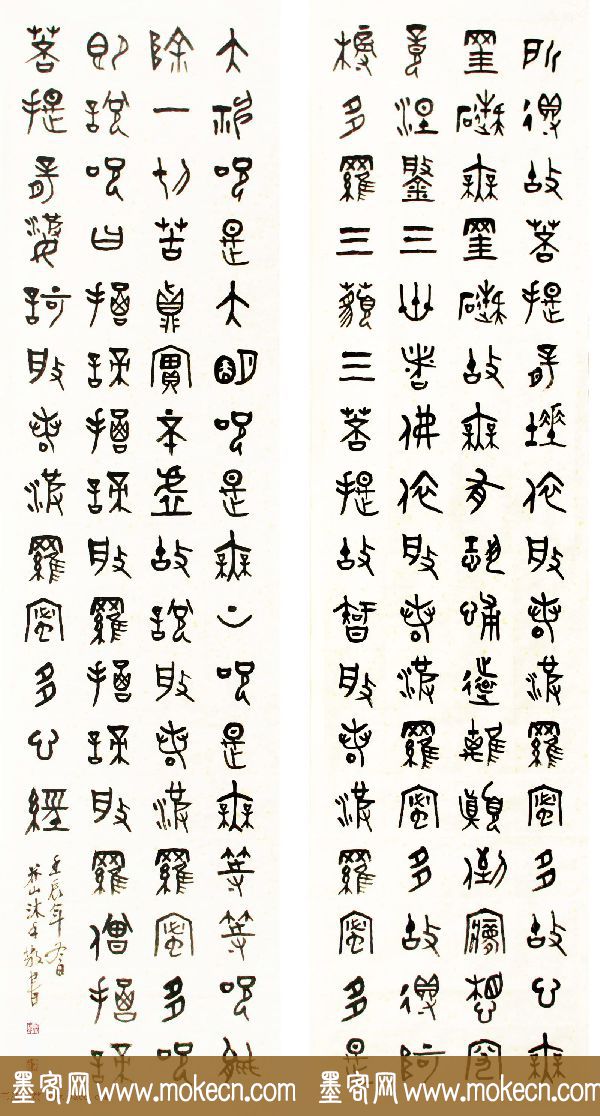 所得故菩提薩埵依般若波羅蜜多故心無
罣礙無罣礙故無有恐怖遠離顛倒夢想究
竟涅槃三世諸佛依般若波羅蜜多故得阿
耨多羅三藐三菩提故知般若波羅蜜多是
大神呪是大明呪是無上呪是無等等呪能
除一切苦真實不虛故說般若波羅蜜多呪
即說呪曰揭諦揭諦般羅揭諦般羅僧揭諦
菩提薩婆訶般若波羅蜜多心經
壬辰年冬日
山沐手敬書
墨客网 www.mokecn.com 墨客网 www.mokecn.com